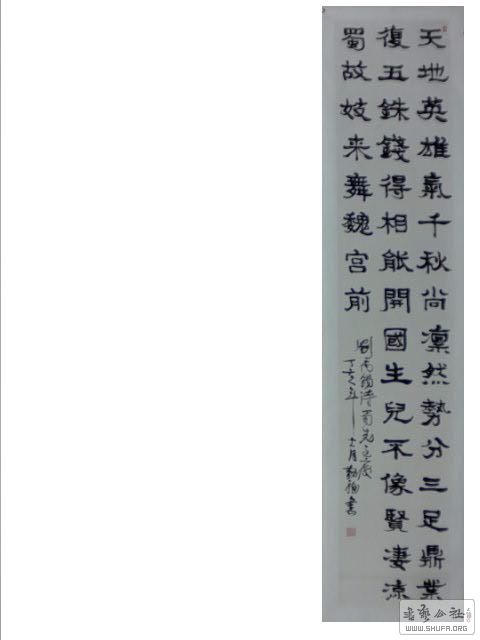 天地英雄氣千秋尚凛然勢分三足鼎業
復五銖錢得相能開國生兒不像賢凄涼
蜀故妓来舞魏宫前
劉禹錫诗蜀先主庙
丁亥年十月
書
书艺公社
WWW.SHUFA.ORG